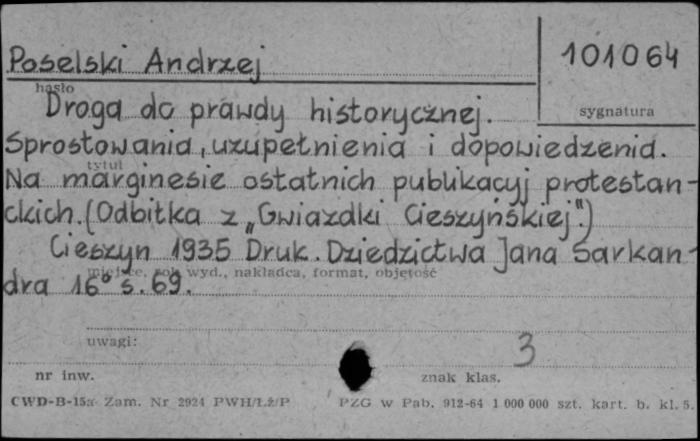 Poselski Andrzej
101064
hasło
sygnatura
Droga do prawdy historycznej.
Sprostowania, uzupełnienia i dopowiedzenia.
tytuł
Na marginesie ostatnich publikacyj protestan-
ckich. (Odbitka z „Gwiazdki Cieszyńskiej".)
Cieszyn 1935 Druk. Dziedzictwa Jana Sarkan-
miejsce, rok wyd., nakładca, format, objętość
dra 16° s. 69.
uwagi:
3
nr inw.
znak klas.
CWD-B-15a Zam. Nr 2924 PWH/Łż/P
PZG w Pab. 912-64 1 000 000 szt. kart. b. kl. 5.